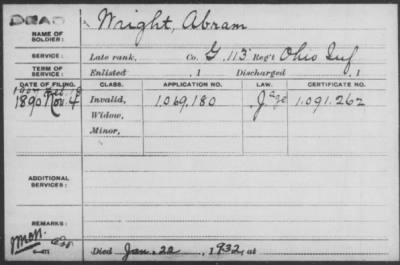 DEAD
NAME OF SOLDIER: Wright, Abram
SERVICE: Late rank, Co. G. 113 Reg't Ohio Inf
TERM OF SERVICE: Enlisted , 1 Discharged , 1
DATE OF FILING. CLASS. APPLICATION NO. LAW. CERTIFICATE NO.
1890 Nov. 4 Invalid, 1,069,180 1,091,262
Widow,
Minor,
ADDITIONAL SERVICES:
REMARKS:
Died Jan. 22, 1932, at
6-4477